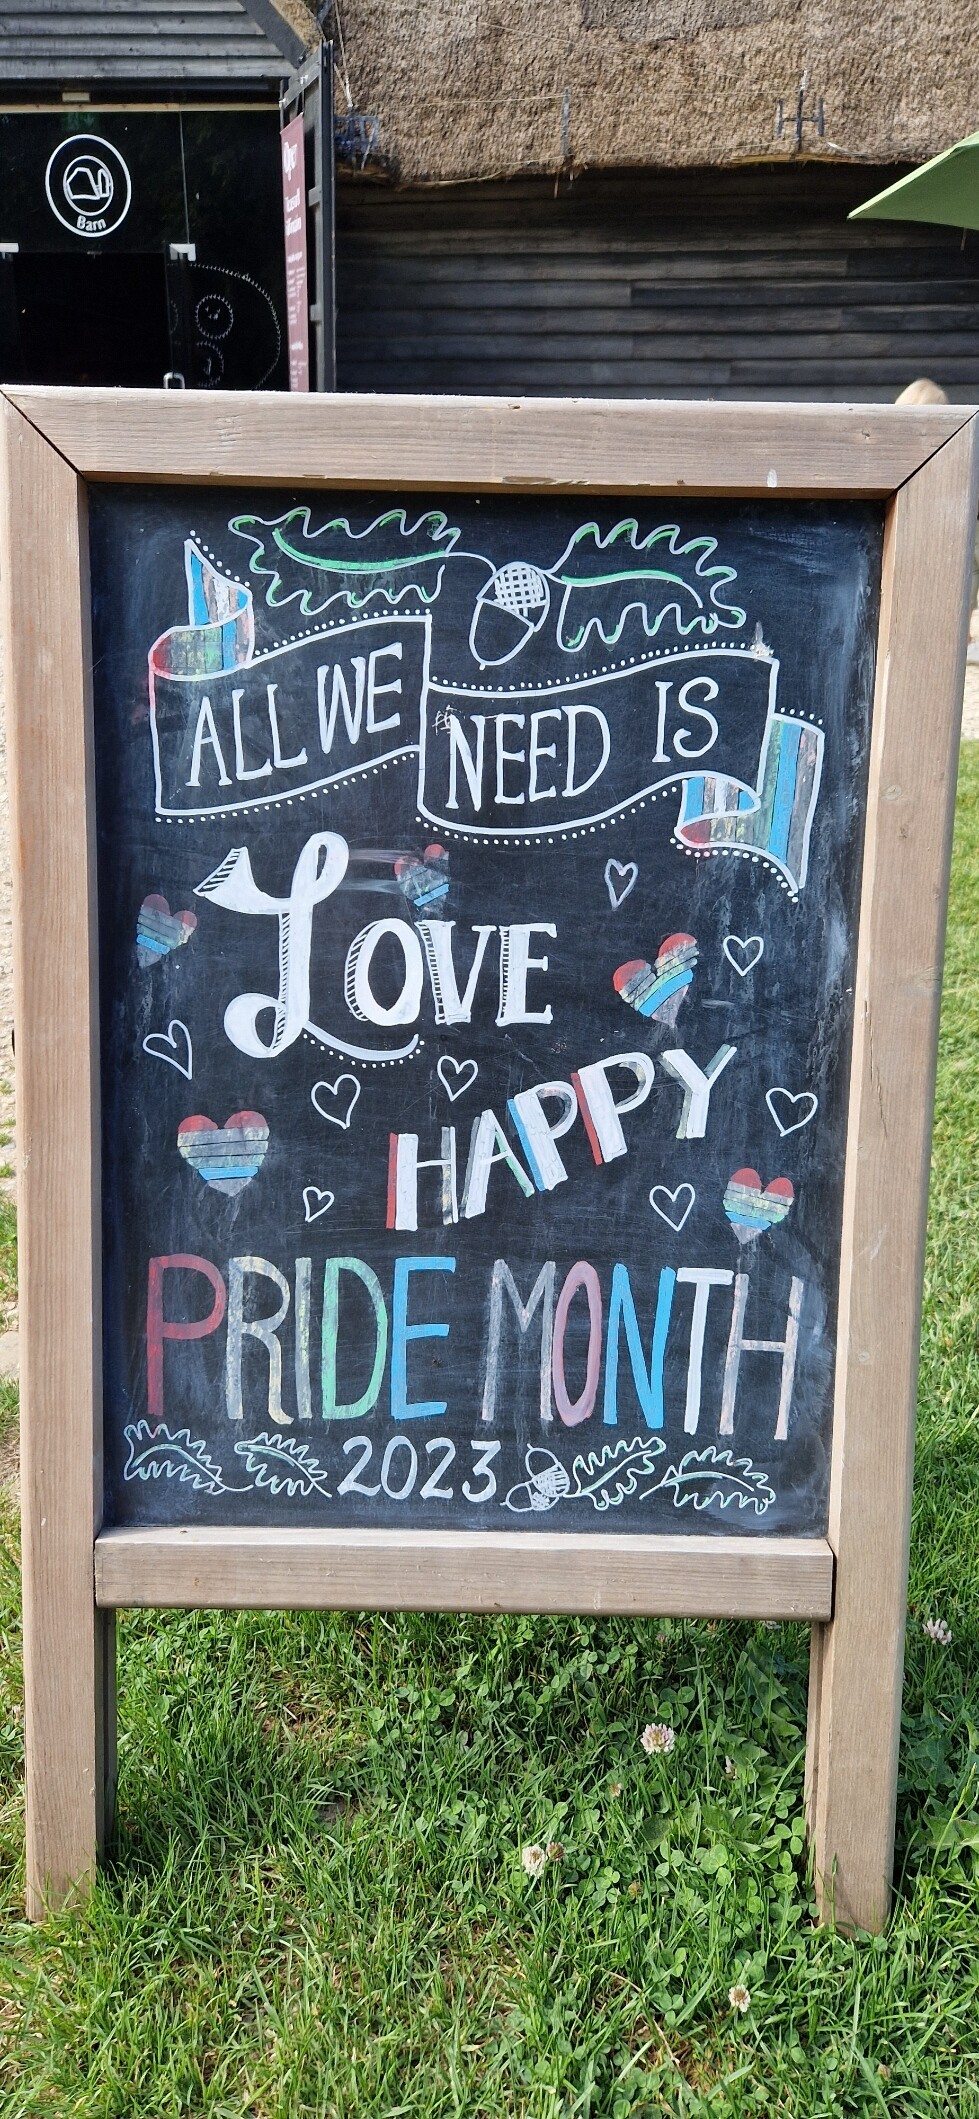 Barn
ALL WE
NEED IS
LOVE
HAPPY
PRIDE MONTH
2023